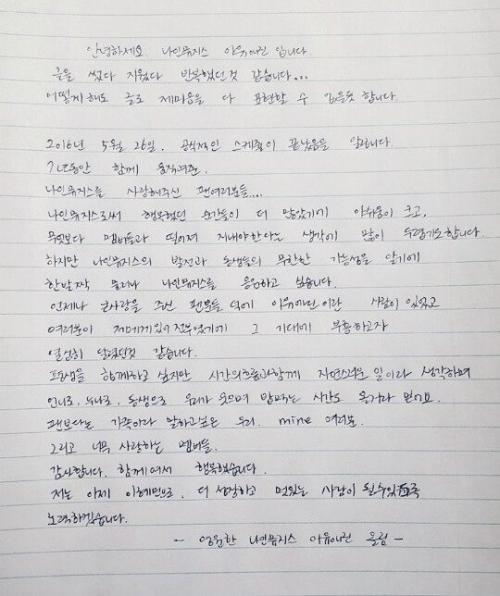 안녕하세요 나인뮤지스 이유애린 입니다
글을 썼다 지웠다 반복했던것 같습니다...
어떻게 해도 글로 제마음을 다 표현할 수 없을듯 합니다.
2016년 5월 26일. 공식적인 스케줄이 끝났음을 알립니다.
7년동안 함께 움직여준
나인뮤지스를 사랑해주신 팬여러분들....
나인뮤지스로써 행복했던 순간들이 더 많았기에 아쉬움이 크고,
무엇보다 멤버들과 떨어져 지내야한다는 생각에 많이 두렵기도합니다.
하지만 나인뮤지스의 발전과 동생들의 무한한 가능성을 알기에
한발짝 물러나 나인뮤지스를 응원하고 싶습니다.
언제나 큰사랑을 주신 팬분들 덕에 이유애린이란 사람이 있었고
여러분이 제에게있어 전부였기에 그 기대에 부흥하고자
열심히 달렸던것 같습니다.
함께하고 싶지만 시간의흐름과함께 자연스러운 일이라 생각하며
언니로, 누나로, 동생으로 우리가 웃으며 만나는 시간도 올거라 믿어요.
팬보다는 가족이라 말하고싶은 우리. mine 여러분.
그리고 너무 사랑하는 멤버들.
감사합니다. 함께여서 행복했습니다.
저는 이제 이혜민으로, 더 성장하고 멋있는 사람이 될수있도록
노력하겠습니다.
- 영원한 나인뮤지스 이유애린 올림 -